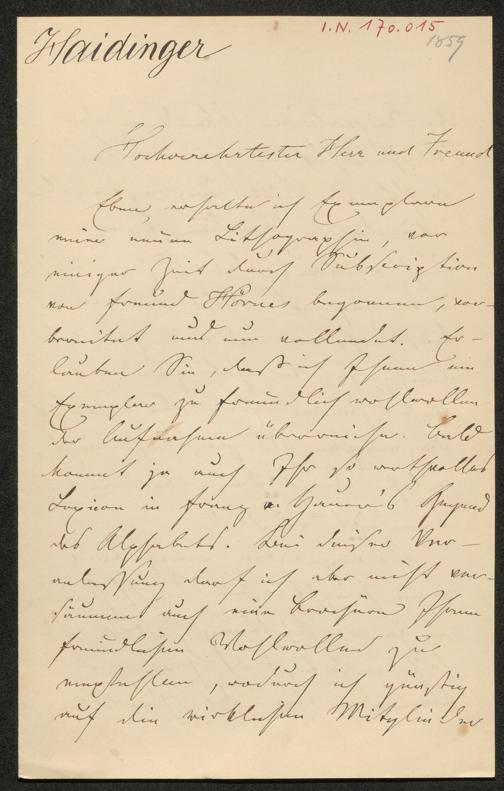 I.N. 170.015
Haidinger
1859
Hochverehrtester Herr und Freund
Eben erhalte ich Exemplare
meiner neuen Lithographie, vor
einiger Zeit durch Subscription
von Freund Hörnes begonnen, vor-
bereitet und nun vollendet. Er-
lauben Sie, daß ich Ihnen ein
Exemplar zu freundlich wohlwollen
der Aufnahme überreiche. Bald
kommt ja auch Ihr so werthvolles
Lexicon in Franz v. Hauer's Gegend
des Alphabets. Bei dieser Ver-
anlassung darf ich aber nicht ver-
säumen auch eine Brochüre Ihrem
freundlichen Wohlwollen zu
empfehlen, wodurch ich günstig
auf die wirklichen Mitglieder